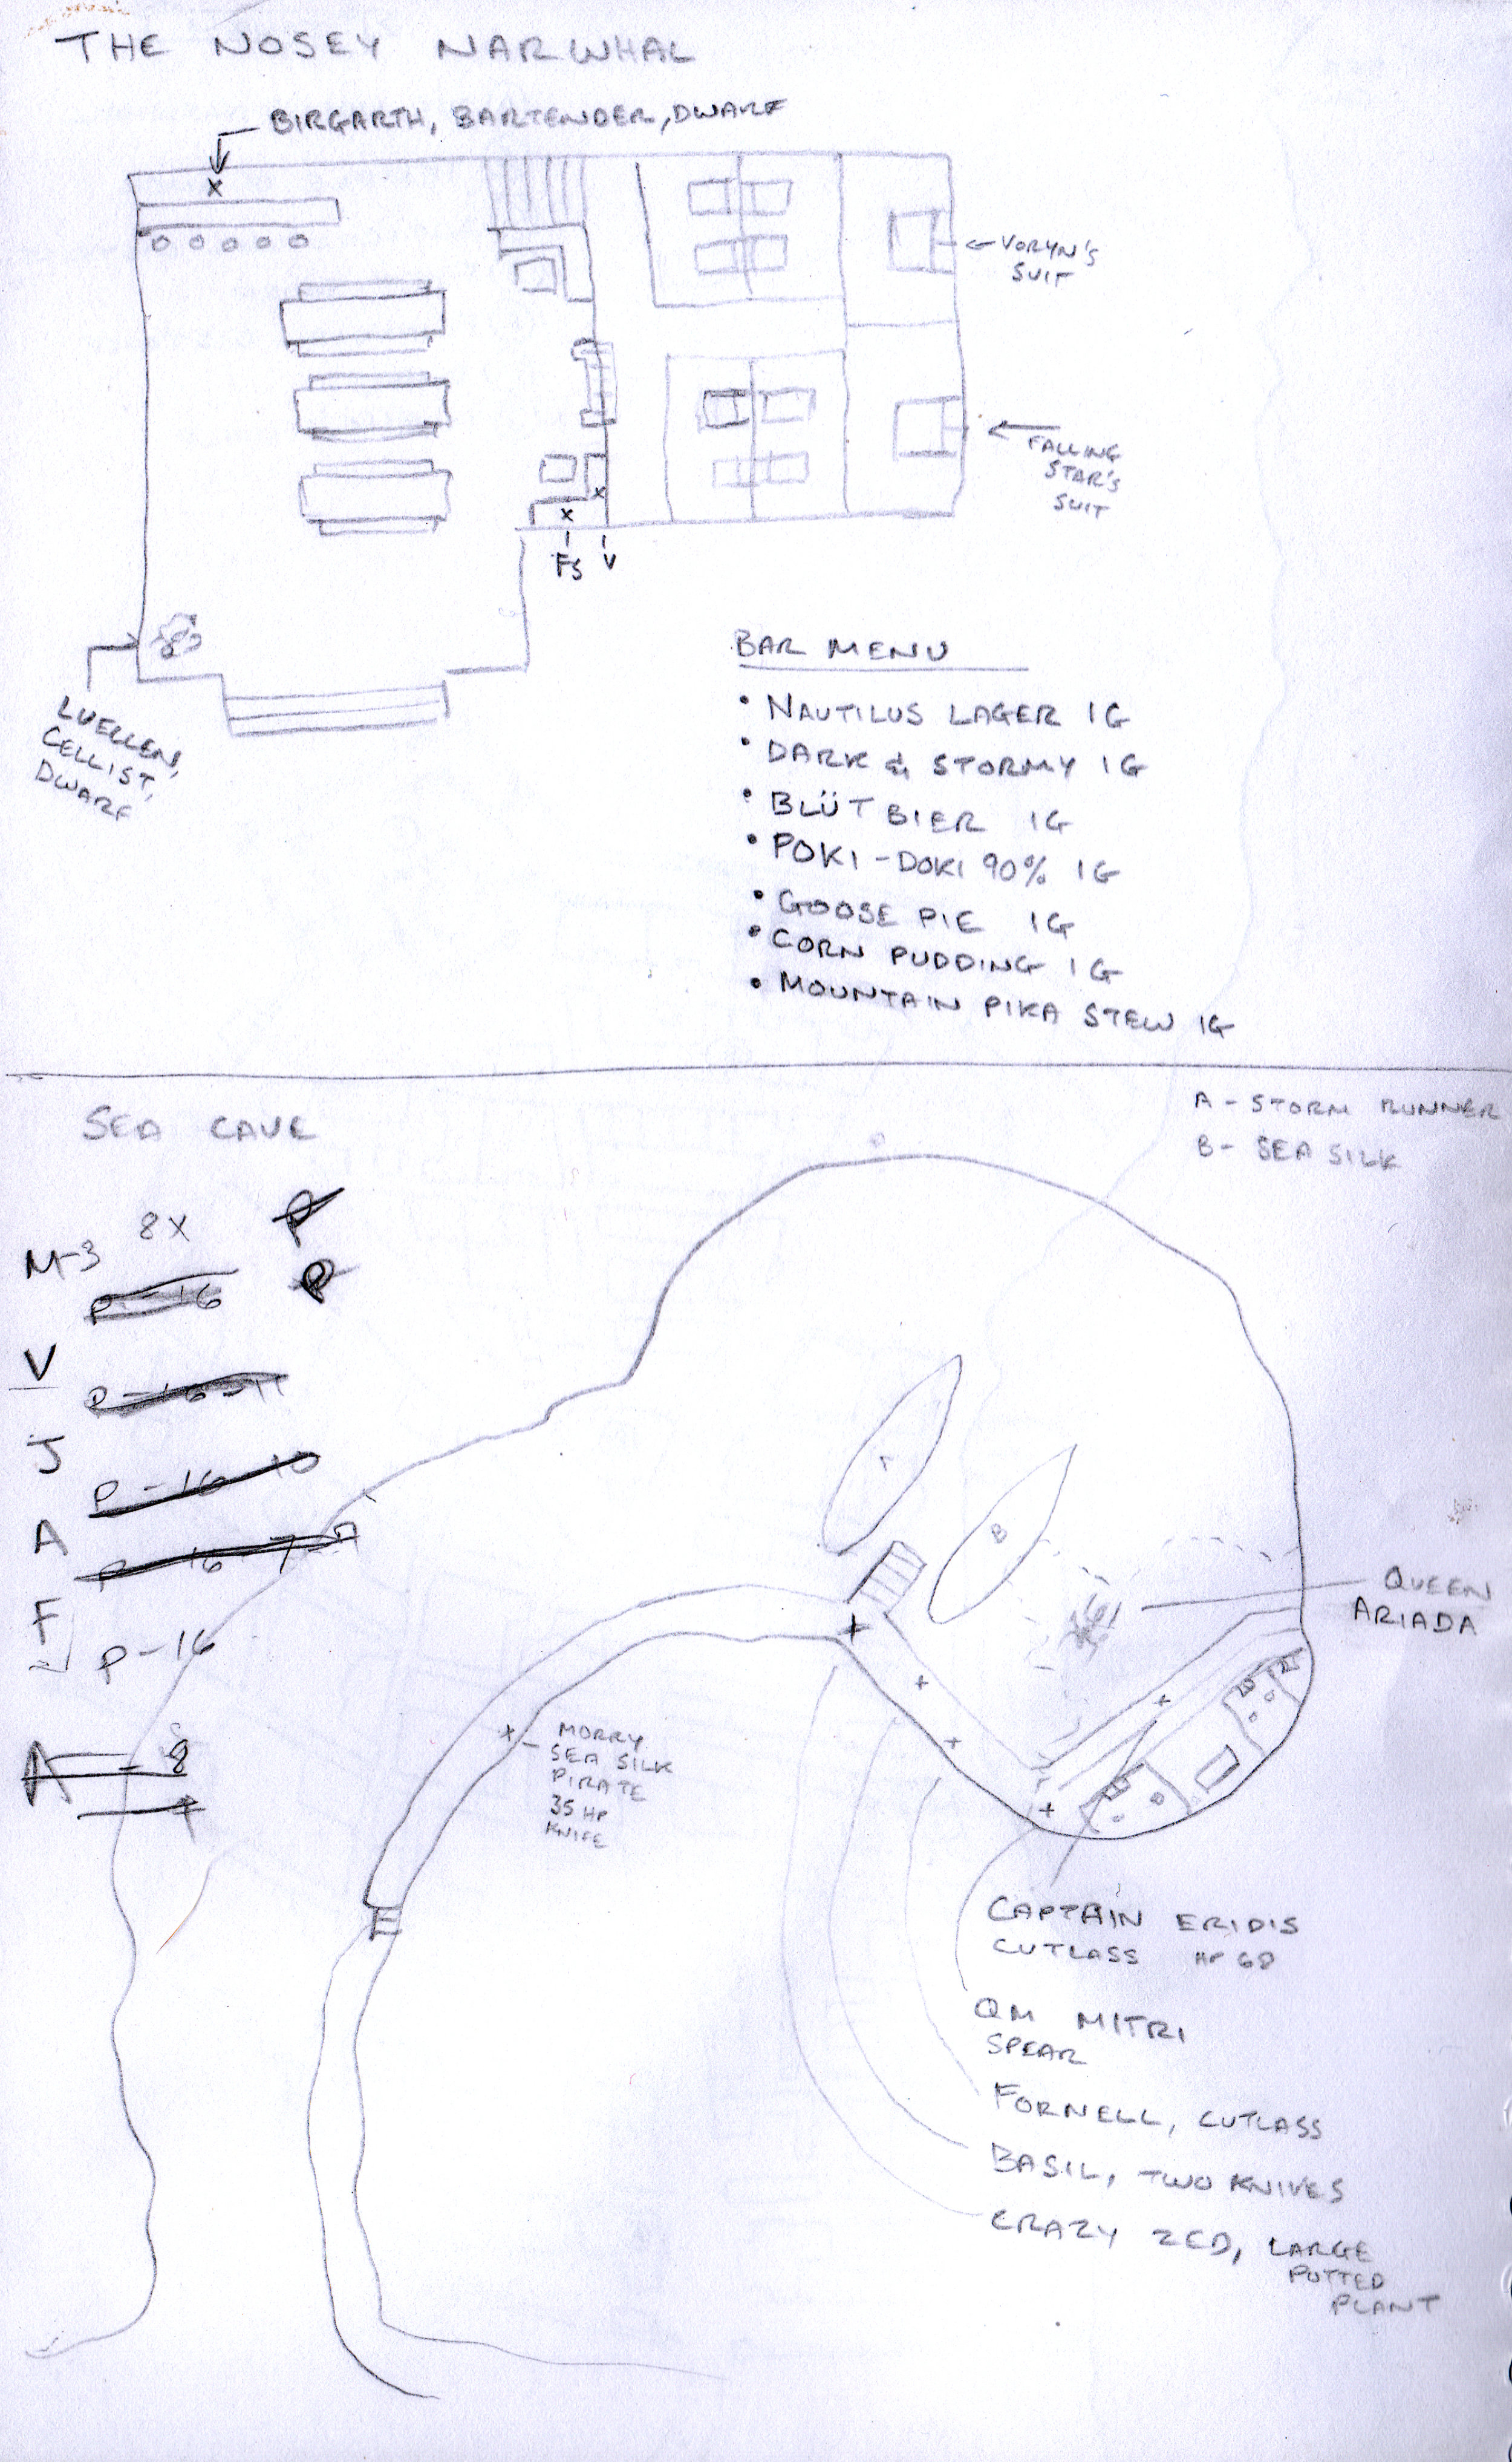 THE NOSEY NARWHAL
BIRGARTH, BARTENDER, DWARF
x
VORYN'S
SUIT
FALLING
STAR'S
SUIT
x
x
FS V
LUELLEN,
CELLIST,
DWARF
BAR MENU
• NAUTILUS LAGER 1G
• DARK & STORMY 1G
• BLÜT BIER 1G
• POKI-DOKI 90% 1G
• GOOSE PIE 1G
• CORN PUDDING 1G
• MOUNTAIN PIKA STEW 1G
A - STORM RUNNER
B - SEA SILK
SEA CAVE
8X P
M-3
P-16 P
V
P-16-11
J
P-16-10
A
P-16-7
F
P-16
A 8
B
QUEEN
ARIADA
MORRY
SEA SILK
PIRATE
35 HP
KNIFE
CAPTAIN ERIDIS
CUTLASS HP 68
QM MITRI
SPEAR
FORNELL, CUTLASS
BASIL, TWO KNIVES
CRAZY ZED, LARGE
POTTED
PLANT